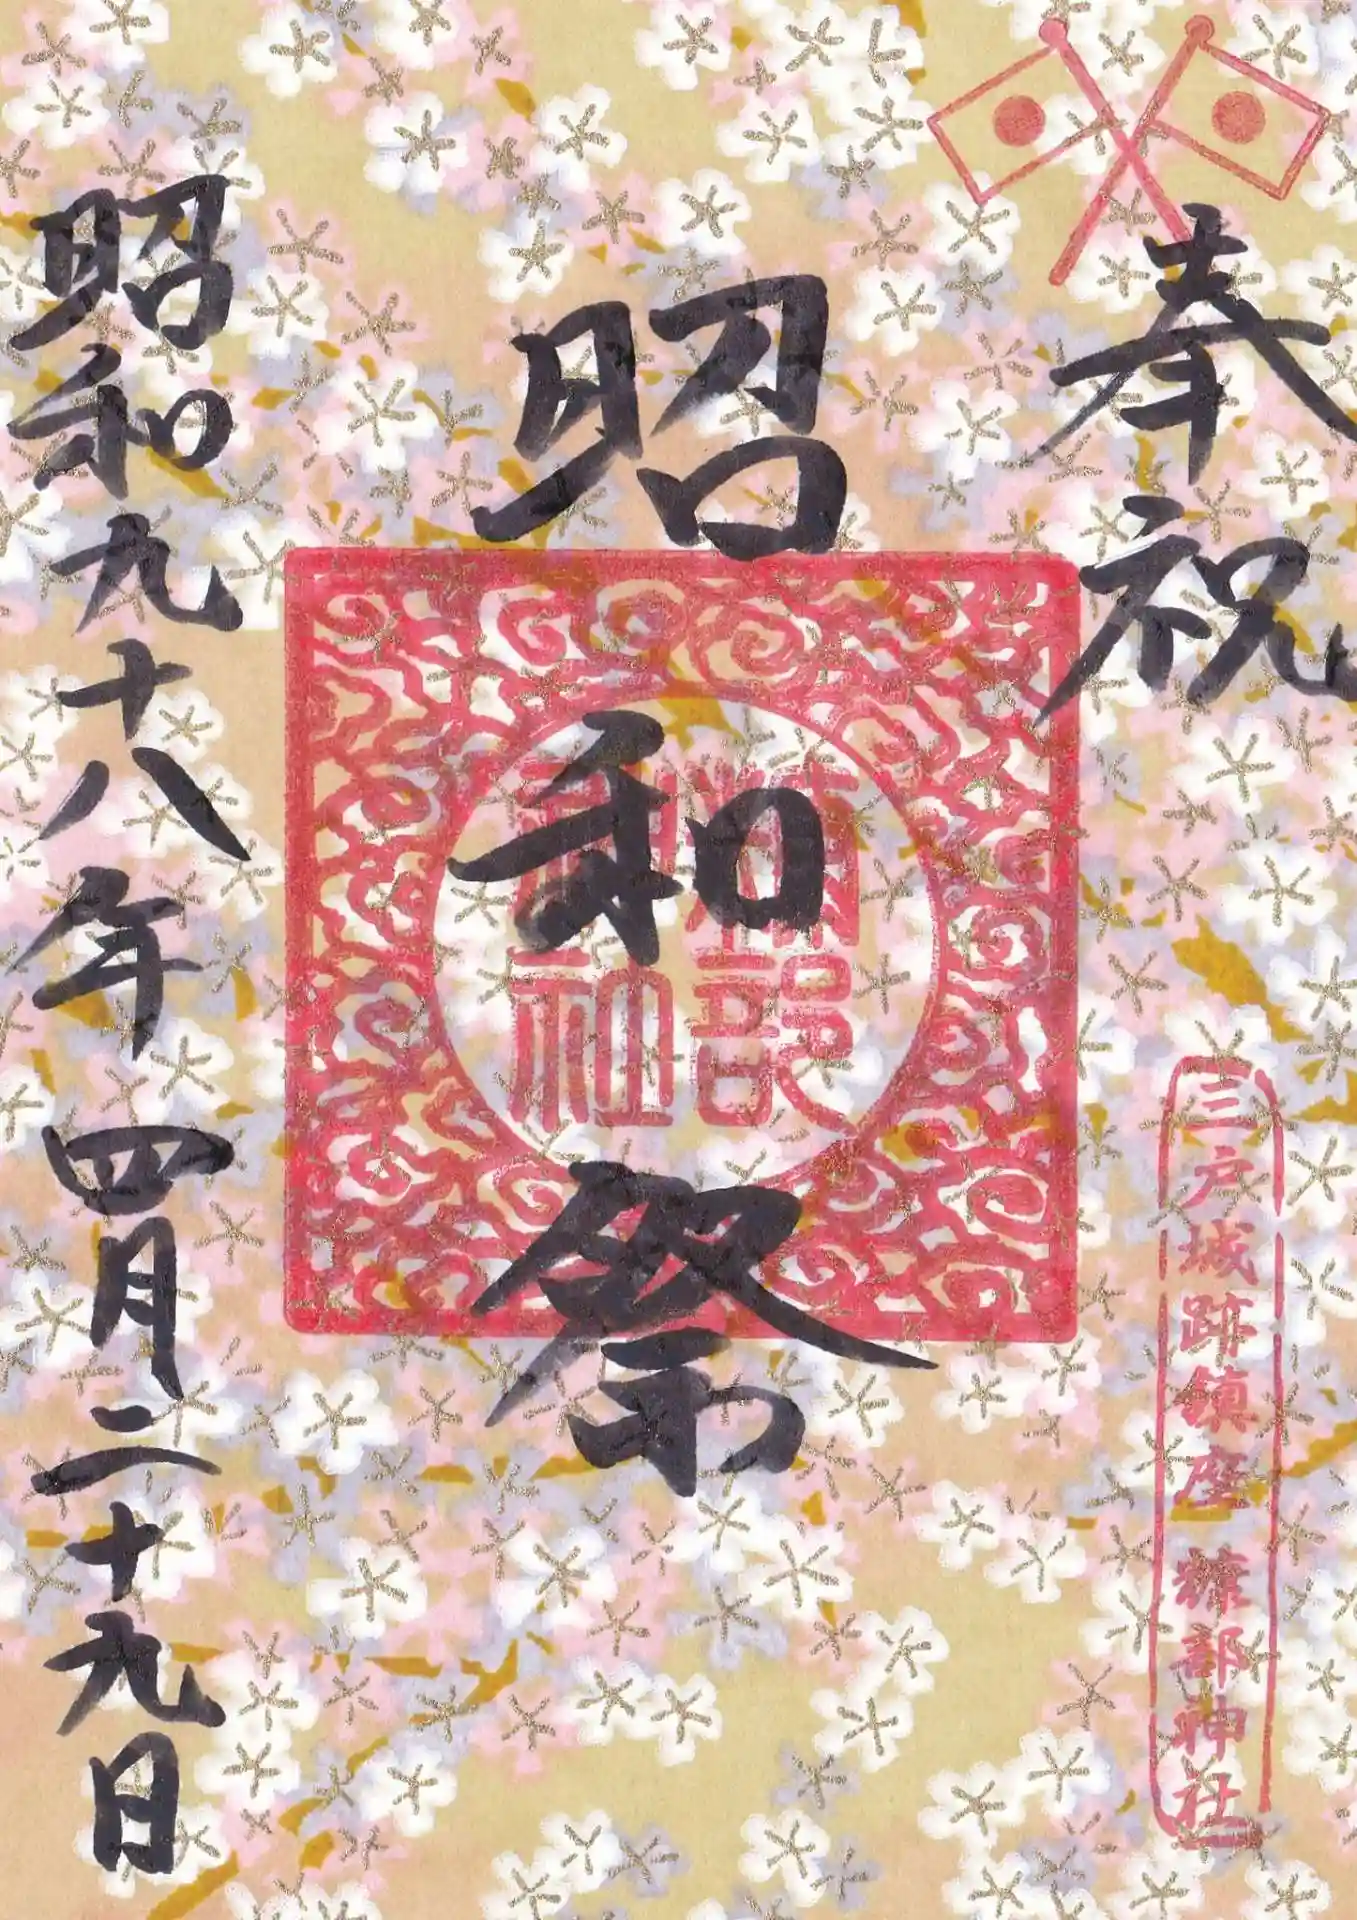 奉祝
三戸城跡鎮座 糠部神社
昭和祭
糠部神社
昭和九十八年四月二十九日